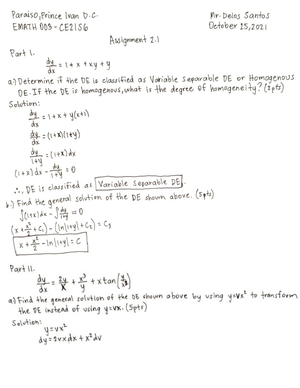 Paraiso, Prince Ivan D.C.
Mr. Delos Santos
EMATH 003 - CE21S6
October 15, 2021
Assignment 2.1
Part I.
dy/dx = 1 + x + xy + y
a.) Determine if the DE is classified as Variable Separable DE or Homogenous
DE. If the DE is homogenous, what is the degree of homogeneity? (5pts)
Solution:
dy/dx = 1 + x + y(x+1)
dy/dx = (1+x)(1+y)
dy/1+y = (1+x) dx
(1+x) dx - dy/1+y = 0
∴, DE is classified as Variable Separable DE
b.) Find the general solution of the DE shown above. (5pts)
∫(1+x) dx - ∫dy/1+y = 0
(x + x²/2 + C₁) - (ln|1+y| + C₂) = C₃
x + x²/2 - ln|1+y| = C
Part II.
dy/dx = 2y/x + x³/y + x tan(y/x²)
a) Find the general solution of the DE shown above by using y=vx² to transform
the DE instead of using y=vx. (5pts)
Solution:
y = vx²
dy = 2vx dx + x² dv